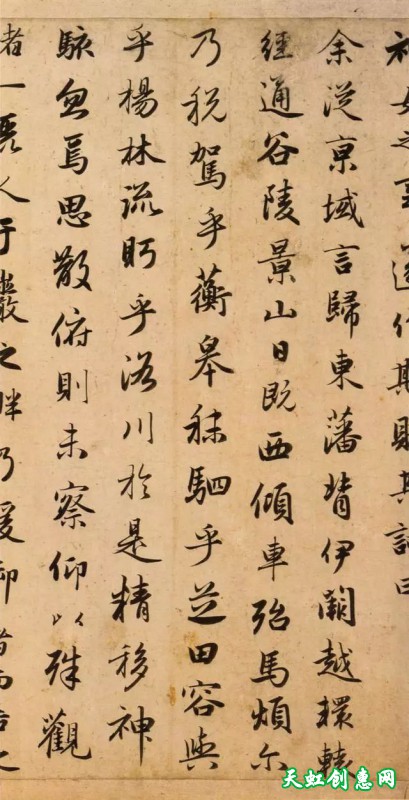 女之事遂作斯賦其詞曰
余從亰域言歸東藩背伊闕越轘轅
經通谷陵景山日既西傾車殆馬煩尒
乃稅駕乎蘅皋秣駟乎芝田容與
乎楊林流眄乎洛川於是精移神
駭忽焉思散俯則未察仰以殊觀
一麗人于巖之畔乃援御者而告之
天虹创惠网